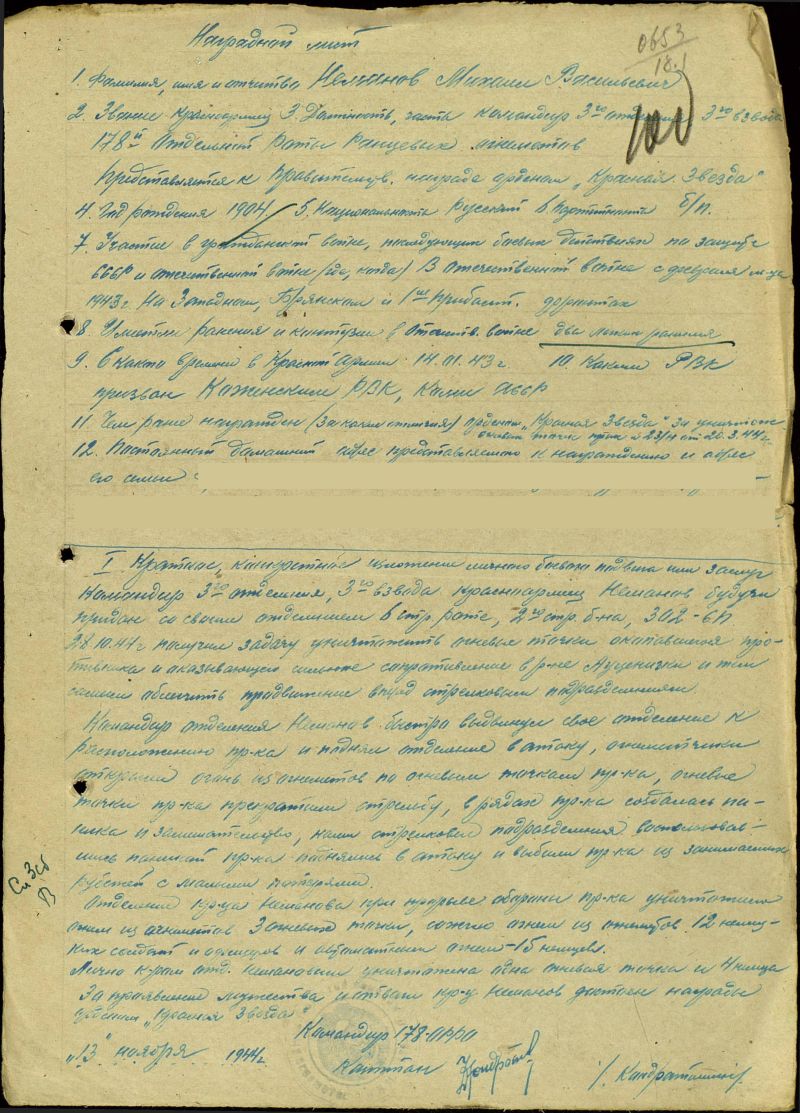 Наградной лист
0653
18.1
1. Фамилия, имя и отчество Неманов Михаил Васильевич
2. Звание Красноармеец 3. Должность, часть командир 3го отделения 3го взвода
178й Отдельной Роты Ранцевых огнеметов
Представляется к Правительств. награде орденом „Красная Звезда"
4. Год рождения 1904 5. Национальность Русский 6. Партийность б/п.
7. Участие в гражданской войне, последующих боевых действиях по защите
СССР и отечественной войне (где, когда) В отечественной войне с февраля м-ца
1943г. На Западном, Брянском и 1ом Прибалт. фронтах
8. Имеет ли ранения и контузии в отечеств. войне два легких ранения
9. С какого времени в Красной армии 14.01.43г. 10. Каким РВК
призван Коженским РВК, Коми АССР
11 Чем ранее награжден (за какие отличия) орденом „Красная Звезда" за уничтож.
огневых точек пр-ка 23/н от 20.3.44г.
12. Постоянный домашний адрес представляемого к награждению и адрес
его семьи
I Краткое, конкретное изложение личного боевого подвига или заслуг
Командир 3го отделения, 3го взвода красноармеец Неманов будучи
придан со своим отделением 6 стр. роте, 2го стр. б-на, 302-СП
28.10.44г получил задачу уничтожить огневые точки окопавшегося про-
тивника и оказывающего сильное сопротивление в р-не и тем
самым облегчить продвижение вперед стрелковым подразделениям.
Командир отделения Неманов быстро выдвинул свое отделение к
расположению пр-ка и поднял отделение в атаку, огнеметчики
открыли огонь из огнеметов по огневым точкам пр-ка, огневые
точки пр-ка прекратили стрельбу, в рядах пр-ка создалась па-
ника и замешательство, наши стрелковые подразделения воспользовав-
шись паникой пр-ка поднялись в атаку и выбили пр-ка из занимаемых
рубежей с малыми потерями.
Отделение кр-ца Неманова при прорыве обороны пр-ка уничтожило
огнем из огнеметов 3 огневые точки, сожгло огнем из огнеметов 12 немец-
ких солдат и офицеров и автоматным огнем - 15 немцев.
Лично к-ром отд. Немановым уничтожена одна огневая точка и 4 немца
За проявленное мужество и отвагу кр-ц Неманов достоин награды
орденом „Красная Звезда"
Командир 178-ОРРО
„13" ноября 1944г. Капитан /Кондратошкин/